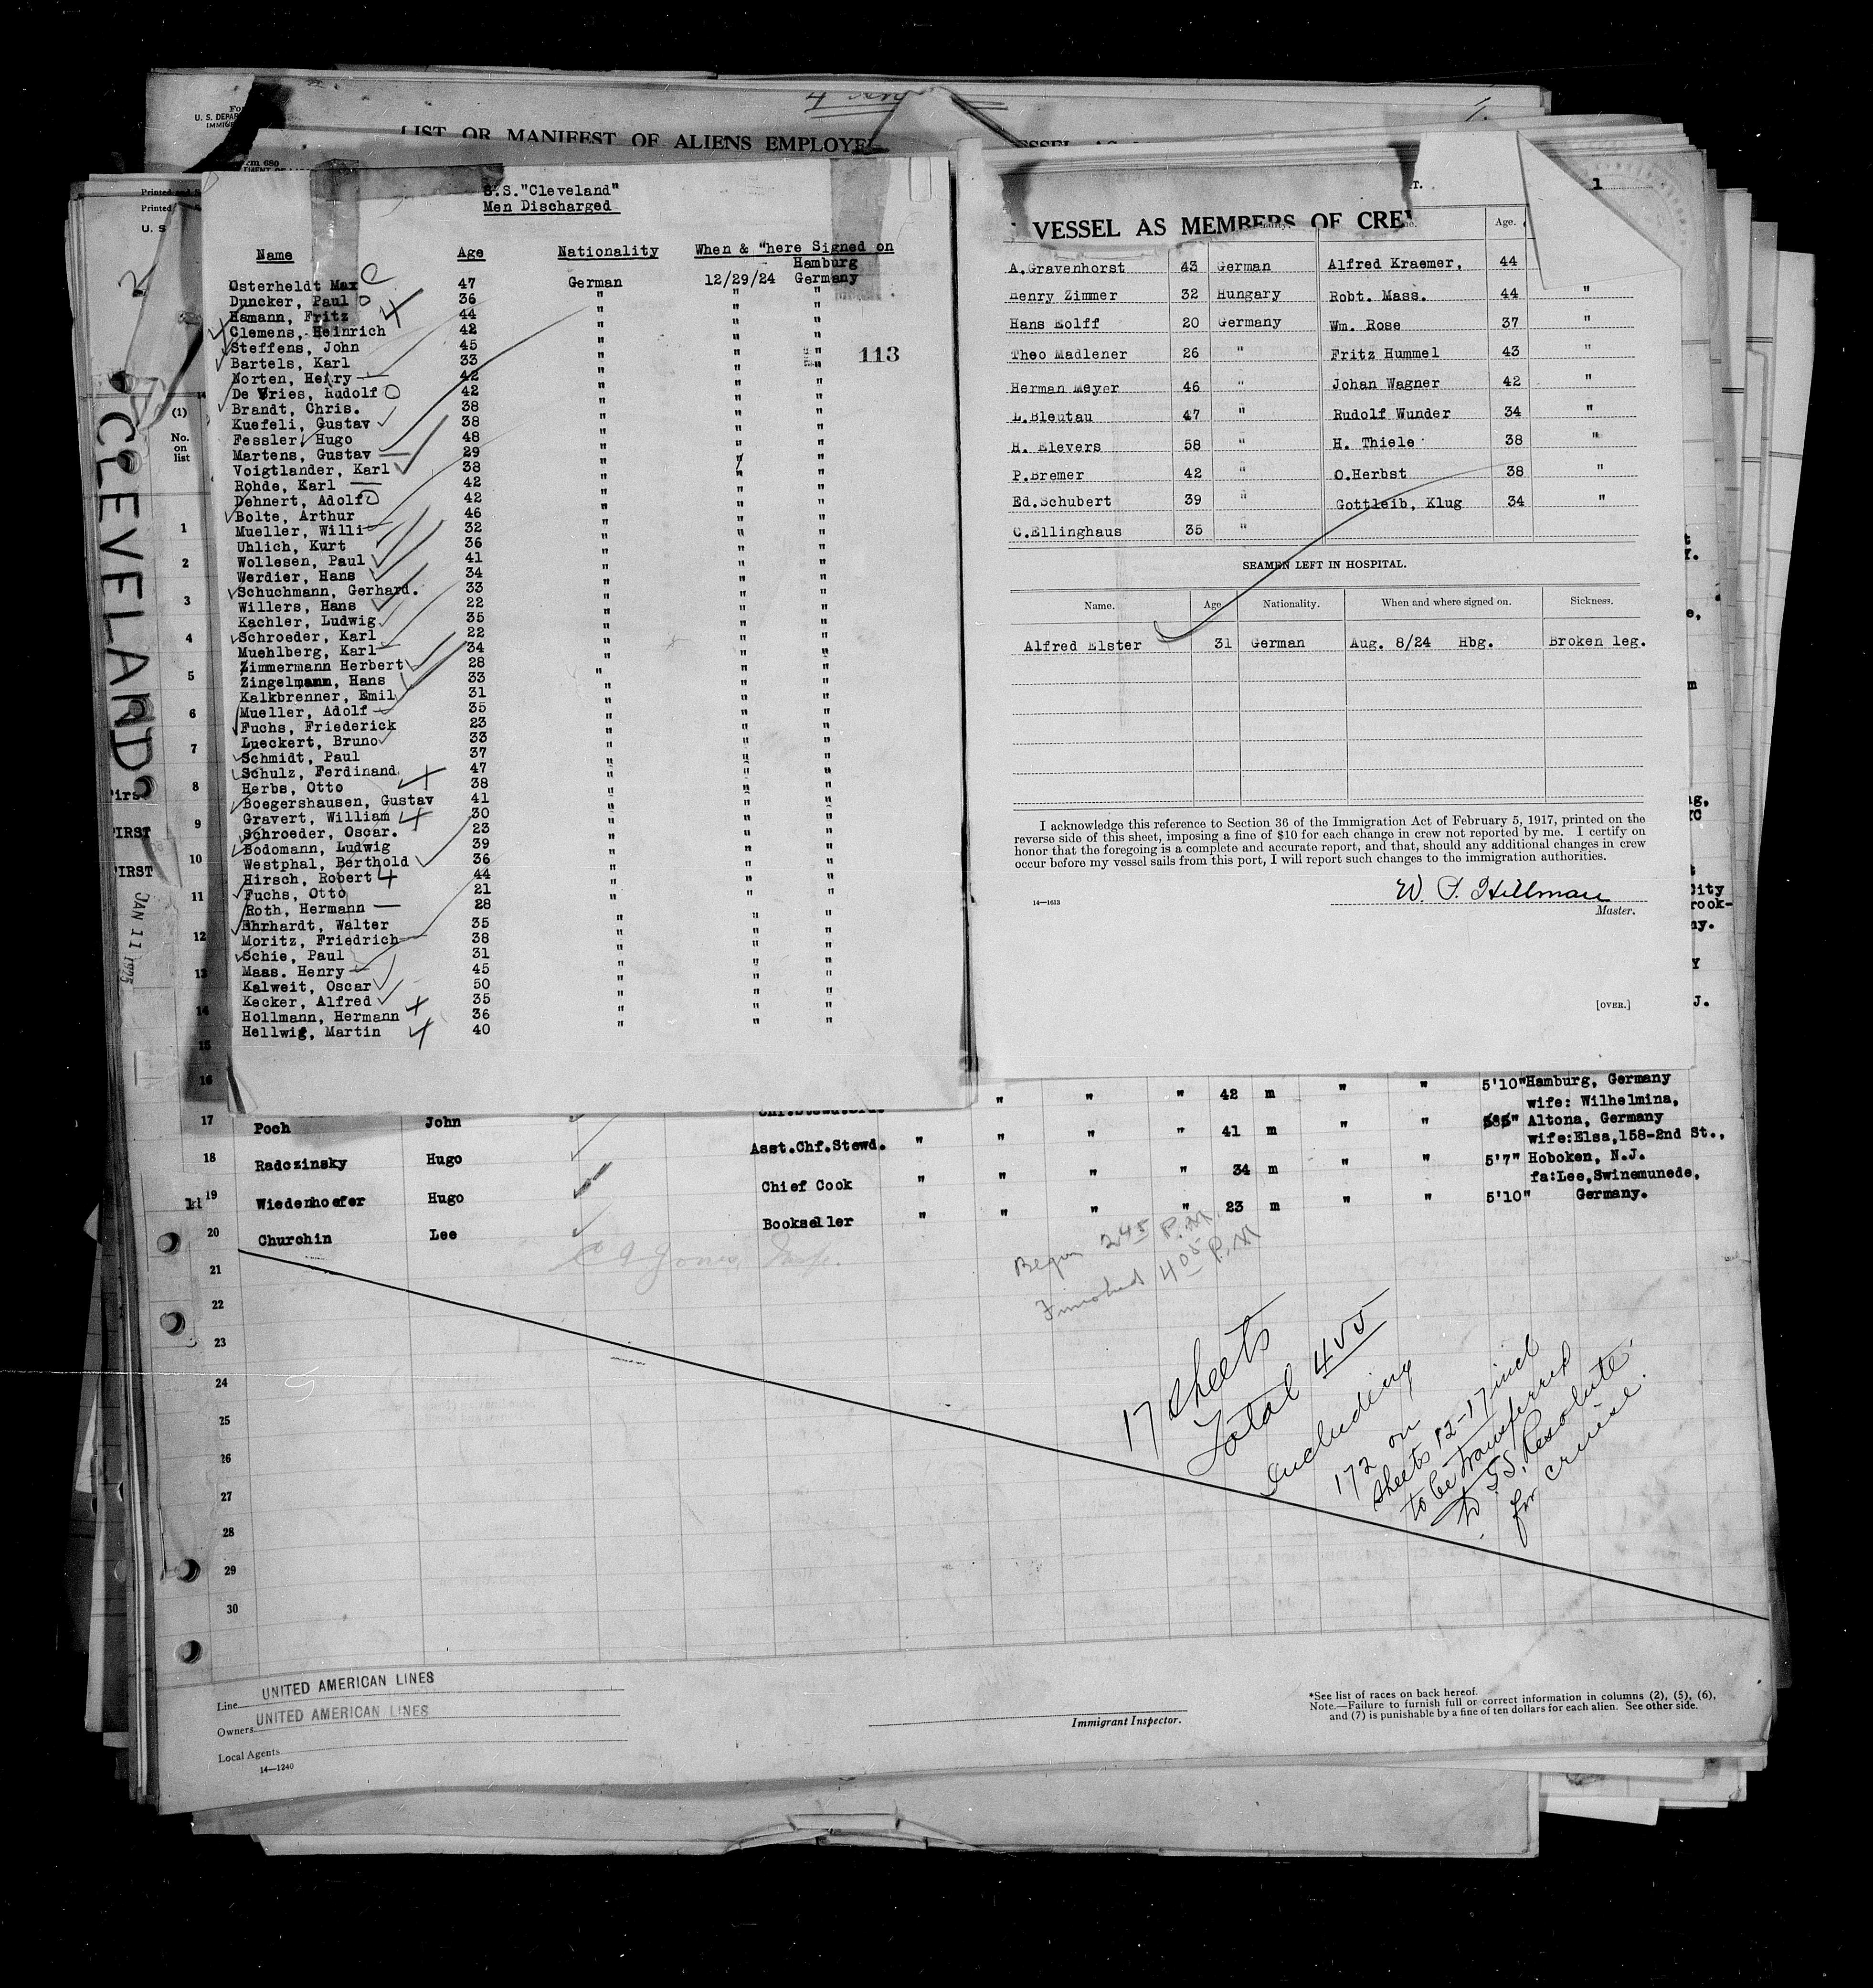 4
1.
LIST OR MANIFEST OF ALIENS EMPLOYE
U. S. DEPAR
Printed
Printed
U. S
CLEVELAND
JAN 11 1925
(1)
No.
on
list
FIRST
FIRST
S.S."Cleveland"
Men Discharged
Name Age Nationality When & "here Signed on
Hamburg
Osterheldt Max 47 German 12/29/24 Germany
Duncker, Paul 36 " " "
Hamann, Fritz 44 " " "
Clemens, Heinrich 42 " " "
Steffens, John 45 " " "
Bartels, Karl 33 " " "
113
Norten, Henry 42 " " "
De Vries, Rudolf 42 " " "
Brandt, Chris. 38 " " "
Kuefeli, Gustav 38 " " "
Fessler, Hugo 48 " " "
Martens, Gustav 29 " " "
Voigtlander, Karl 38 " " "
Rohde, Karl 42 " " "
Dehnert, Adolf 42 " " "
Bolte, Arthur 46 " " "
Mueller, Willi 32 " " "
Uhlich, Kurt 36 " " "
Wollesen, Paul 41 " " "
Werdier, Hans 34 " " "
Schuchmann, Gerhard. 33 " " "
Willers, Hans 22 " " "
Kachler, Ludwig 35 " " "
Schroeder, Karl 22 " " "
Muehlberg, Karl 34 " " "
Zimmermann Herbert 28 " " "
Zingelmann, Hans 33 " " "
Kalkbrenner, Emil 31 " " "
Mueller, Adolf 35 " " "
Fuchs, Friederick 23 " " "
Lueckert, Bruno 33 " " "
Schmidt, Paul 37 " " "
Schulz, Ferdinand 47 " " "
Herbs, Otto 38 " " "
Boegershausen, Gustav 41 " " "
Gravert, William 30 " " "
Schroeder, Oscar. 23 " " "
Bodomann, Ludwig 39 " " "
Westphal, Berthold 36 " " "
Hirsch, Robert 44 " " "
Fuchs, Otto 21 " " "
Roth, Hermann 28 " " "
Ehrhardt, Walter 35 " " "
Moritz, Friedrich 38 " " "
Schie, Paul 31 " " "
Maas. Henry 45 " " "
Kalweit, Oscar 50 " " "
Kecker, Alfred 35 " " "
Hollmann, Hermann 36 " " "
Hellwig, Martin 40 " " "
1
VESSEL AS MEMBERS OF CREW
Age.
A.Gravenhorst 43 German Alfred Kraemer, 44
Henry Zimmer 32 Hungary Robt. Mass. 44 "
Hans Eolff 20 Germany Wm. Rose 37 "
Theo Madlener 26 " Fritz Hummel 43 "
Herman Meyer 46 " Johan Wagner 42 "
L.Bleutau 47 " Rudolf Wunder 34 "
H. Elevers 58 " H. Thiele 38 "
P.Bremer 42 " O.Herbst 38 "
Ed.Schubert 39 " Gottleib, Klug 34 "
C.Ellinghaus 35 "
SEAMEN LEFT IN HOSPITAL.
Name. Age Nationality. When and where signed on. Sickness.
Alfred Elster 31 German Aug. 8/24 Hbg. Broken leg.
I acknowledge this reference to Section 36 of the Immigration Act of February 5, 1917, printed on the
reverse side of this sheet, imposing a fine of $10 for each change in crew not reported by me. I certify on
honor that the foregoing is a complete and accurate report, and that, should any additional changes in crew
occur before my vessel sails from this port, I will report such changes to the immigration authorities.
W. S. Hillman
14—1613
Master.
[OVER.]
1
2
3
4
5
6
7
8
9
10
11
12
13
14
15
16 " " " 42 m " " 5'10" Hamburg, Germany
wife: Wilhelmina,
17 Poch John " " " " 41 m " " Altona, Germany
wife:Elsa,158-2nd St.,
18 Radczinsky Hugo Asst.Chf.Stewd. " " " " 34 m " " 5'7" Hoboken, N.J.
fa:Lee,Swinemunede,
19 Wiedenhoefer Hugo Chief Cook " " " " 23 m " " 5'10" Germany.
20 Churchin Lee Bookseller
Began 2 45 P.M.
Finished 4 05 P.M
21
22
23
24
25
26
27
28
29
30
17 Sheets
Total 455
Including
172 on
Sheets 12-17 incl
to be transferred
to S.S. Resolute
for cruise.
Line UNITED AMERICAN LINES
Owners UNITED AMERICAN LINES
Local Agents
14—1240
Immigrant Inspector.
*See list of races on back hereof.
Note.—Failure to furnish full or correct information in columns (2), (5), (6),
and (7) is punishable by a fine of ten dollars for each alien. See other side.